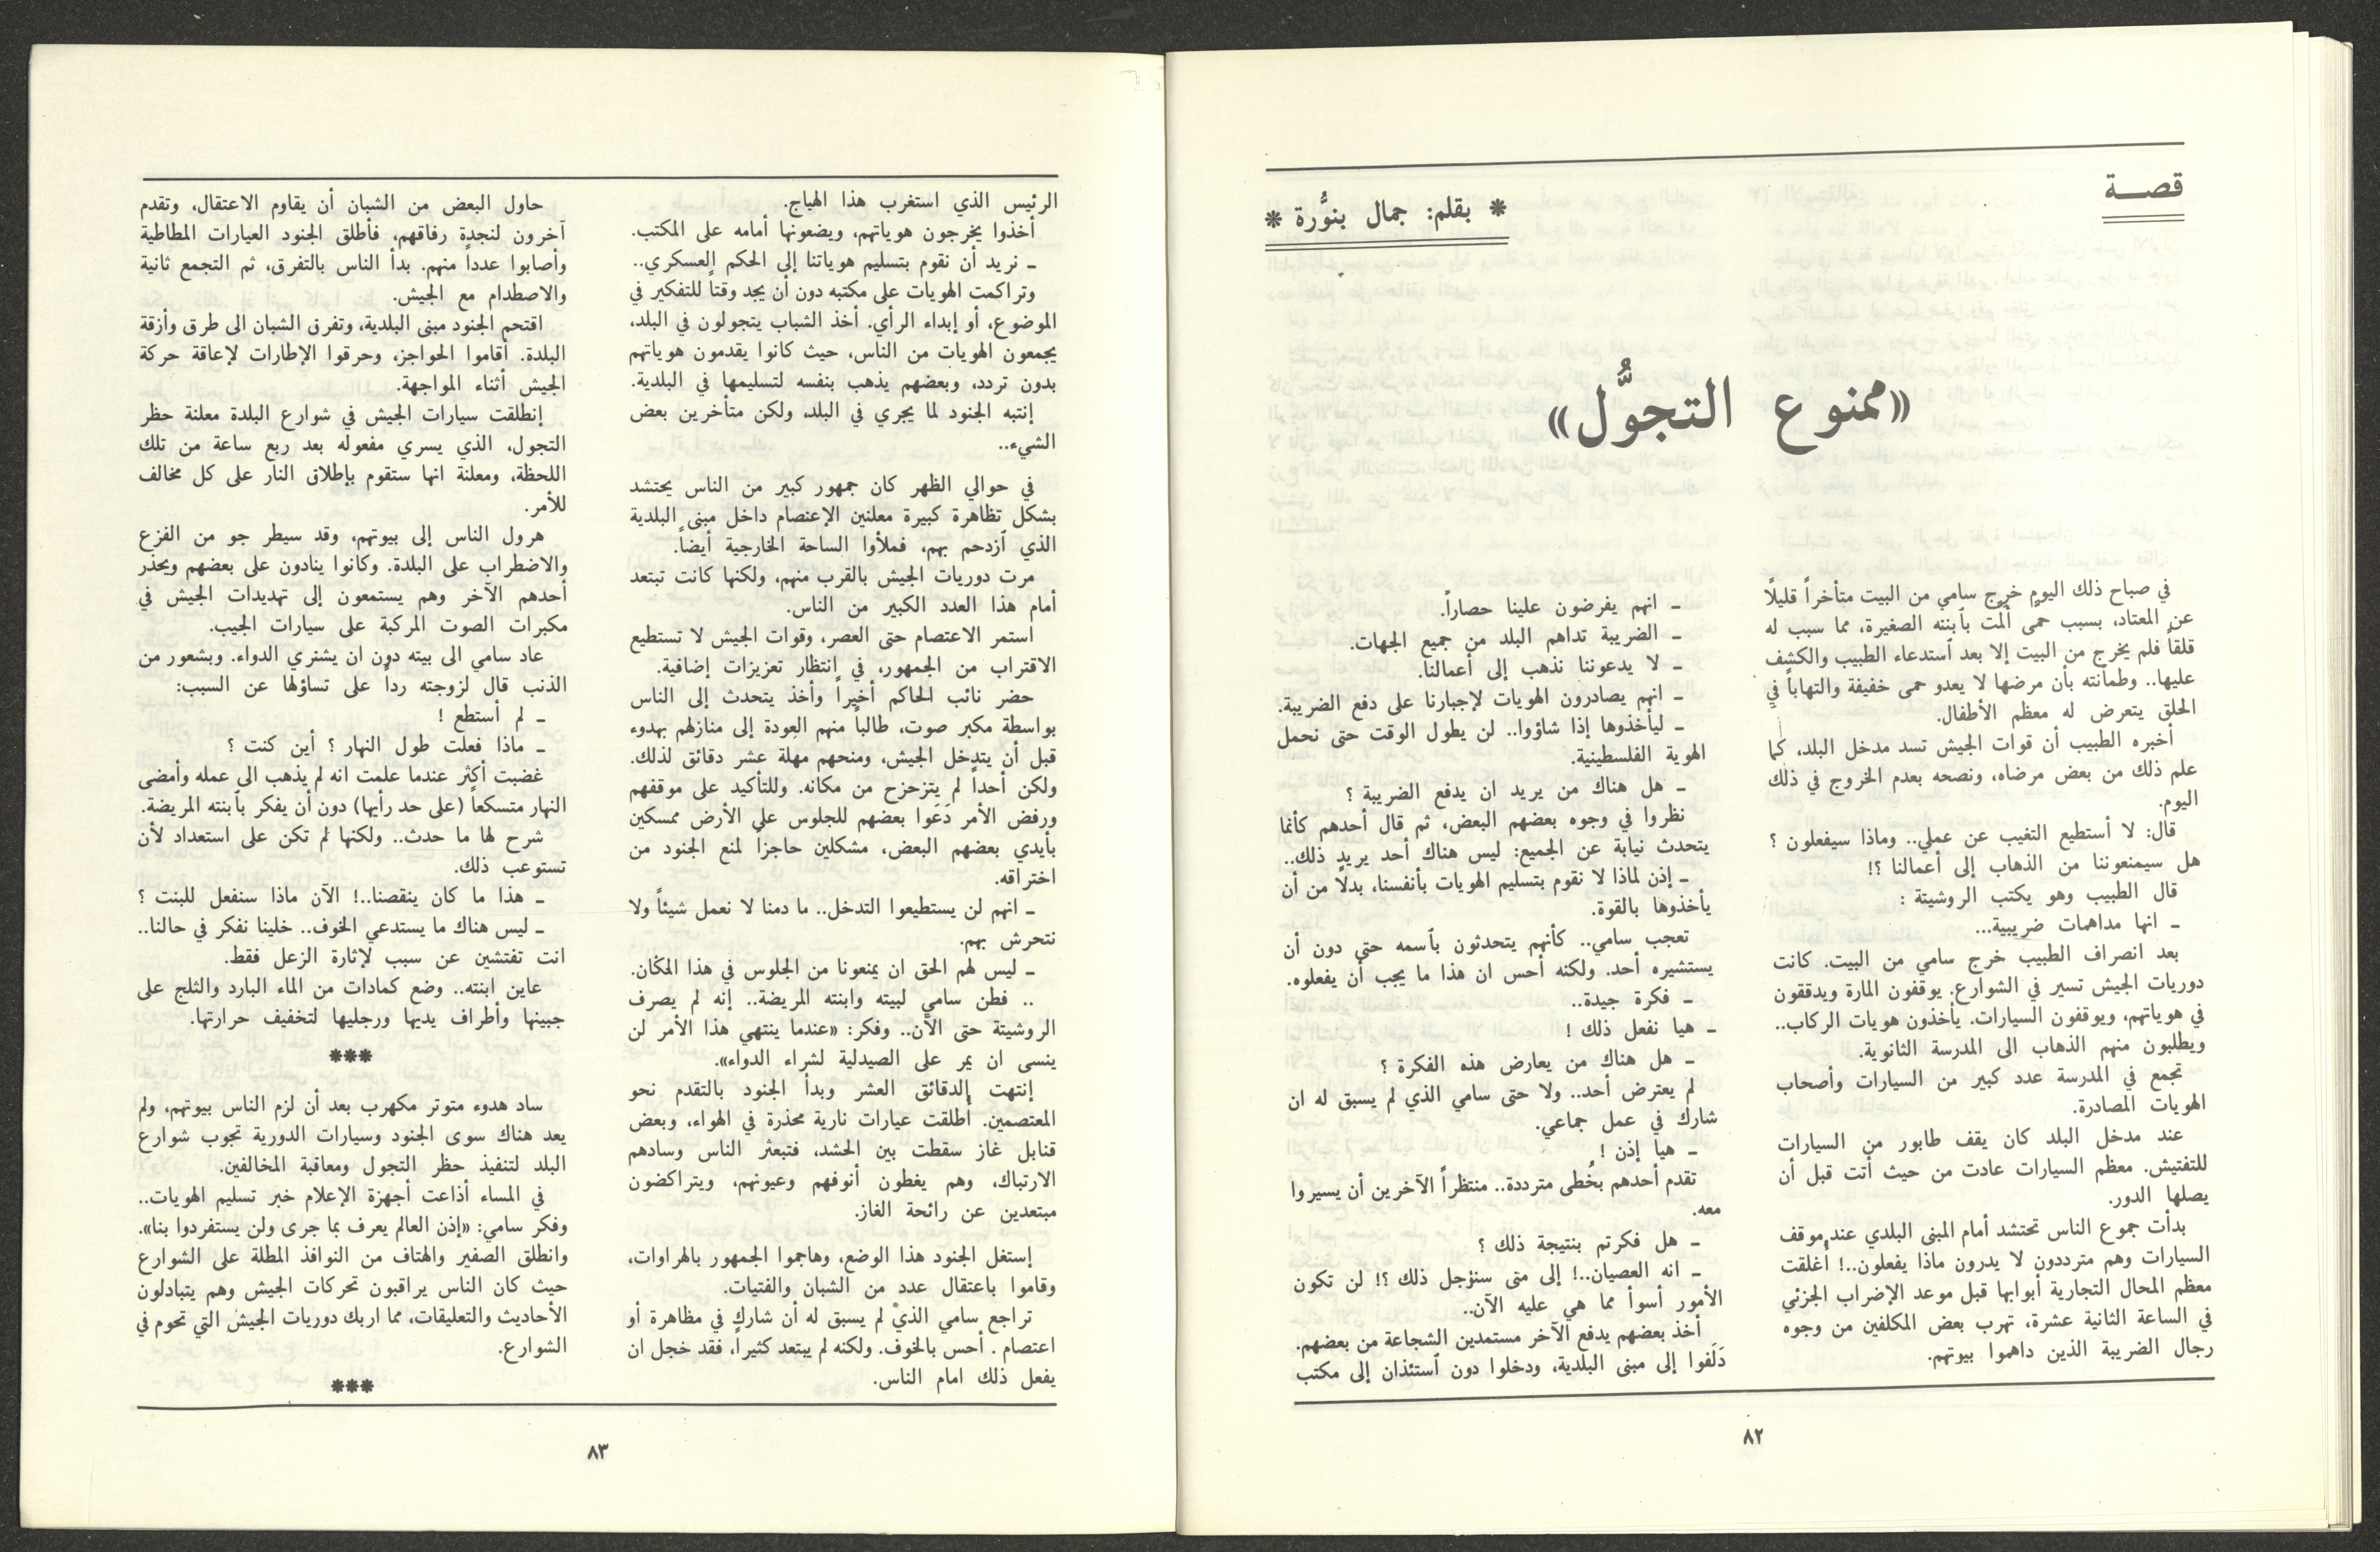 قصـــة
* بقلم: جمال بنوُّرة *
«ممنوع التجوُّل»
في صباح ذلك اليوم خرج سامي من البيت متأخراً قليلًا
عن المعتاد، بسبب حمًى ألمت بٱبنته الصغيرة، مما سبب له
قلقاً فلم يخرج من البيت إلا بعد ٱستدعاء الطبيب والكشف
عليها.. وطمأنته بأن مرضها لا يعدو حمى خفيفة والتهاباً في
الحلق يتعرض له معظم الأطفال.
أخبره الطبيب أن قوات الجيش تسد مدخل البلد، كما
علم ذلك من بعض مرضاه، ونصحه بعدم الخروج في ذلك
اليوم.
قال: لا أستطيع التغيب عن عملي.. وماذا سيفعلون ؟
هل سيمنعوننا من الذهاب إلى أعمالنا ؟!
قال الطبيب وهو يكتب الروشيتة :
ـ انها مداهمات ضريبية...
بعد انصراف الطبيب خرج سامي من البيت. كانت
دوريات الجيش تسير في الشوارع. يوقفون المارة ويدققون
في هوياتهم، ويوقفون السيارات. يأخذون هويات الركاب..
ويطلبون منهم الذهاب الى المدرسة الثانوية.
تجمع في المدرسة عدد كبير من السيارات وأصحاب
الهويات المصادرة.
عند مدخل البلد كان يقف طابور من السيارات
للتفتيش. معظم السيارات عادت من حيث أتت قبل أن
يصلها الدور.
بدأت جموع الناس تحتشد أمام المبنى البلدي عند موقف
السيارات وهم مترددون لا يدرون ماذا يفعلون..! أغلقت
معظم المحال التجارية أبوابها قبل موعد الإضراب الجزئي
في الساعة الثانية عشرة، تهرب بعض المكلفين من وجوه
رجال الضريبة الذين داهموا بيوتهم.
ـ انهم يفرضون علينا حصاراً.
ـ الضريبة تداهم البلد من جميع الجهات.
ـ لا يدعوننا نذهب إلى أعمالنا.
ـ انهم يصادرون الهويات لإجبارنا على دفع الضريبة.
ـ ليأخذوها إذا شاؤوا.. لن يطول الوقت حتى نحمل
الهوية الفلسطينية.
ـ هل هناك من يريد ان يدفع الضريبة ؟
نظروا في وجوه بعضهم البعض، ثم قال أحدهم كأنما
يتحدث نيابة عن الجميع: ليس هناك أحد يريد ذلك..
ـ إذن لماذا لا نقوم بتسليم الهويات بأنفسنا، بدلًا من أن
يأخذوها بالقوة.
تعجب سامي.. كأنهم يتحدثون بٱسمه حتى دون أن
يستشيره أحد. ولكنه أحس ان هذا ما يجب أن يفعلوه.
ـ فكرة جيدة..
ـ هيا نفعل ذلك !
ـ هل هناك من يعارض هذه الفكرة ؟
لم يعترض أحد.. ولا حتى سامي الذي لم يسبق له ان
شارك في عمل جماعي.
ـ هيا إذن !
تقدم أحدهم بخُطى مترددة.. منتظراً الآخرين أن يسيروا
معه.
ـ هل فكرتم بنتيجة ذلك ؟
ـ انه العصيان..! إلى متى سنؤجل ذلك ؟! لن تكون
الأمور أسوأ مما هي عليه الآن..
أخذ بعضهم يدفع الآخر مستمدين الشجاعة من بعضهم.
دَلَفوا إلى مبنى البلدية، ودخلوا دون ٱستئذان إلى مكتب
٨٢
الرئيس الذي استغرب هذا الهياج.
أخذوا يخرجون هوياتهم، ويضعونها أمامه على المكتب.
ـ نريد أن نقوم بتسليم هوياتنا إلى الحكم العسكري..
وتراكمت الهويات على مكتبه دون أن يجد وقتاً للتفكير في
الموضوع، أو إبداء الرأي. أخذ الشباب يتجولون في البلد،
يجمعون الهويات من الناس، حيث كانوا يقدمون هوياتهم
بدون تردد، وبعضهم يذهب بنفسه لتسليمها في البلدية.
إنتبه الجنود لما يجري في البلد، ولكن متأخرين بعض
الشيء..
في حوالي الظهر كان جمهور كبير من الناس يحتشد
بشكل تظاهرة كبيرة معلنين الإعتصام داخل مبنى البلدية
الذي ٱزدحم بهم، فملأوا الساحة الخارجية أيضاً.
مرت دوريات الجيش بالقرب منهم، ولكنها كانت تبتعد
أمام هذا العدد الكبير من الناس.
استمر الاعتصام حتى العصر، وقوات الجيش لا تستطيع
الاقتراب من الجمهور، في انتظار تعزيزات إضافية.
حضر نائب الحاكم أخيراً وأخذ يتحدث إلى الناس
بواسطة مكبر صوت، طالباً منهم العودة إلى منازلهم بهدوء
قبل أن يتدخل الجيش، ومنحهم مهلة عشر دقائق لذلك.
ولكن أحداً لم يتزحزح من مكانه. وللتأكيد على موقفهم
ورفض الأمر دَعَوا بعضهم للجلوس على الأرض ممسكين
بأيدي بعضهم البعض، مشكلين حاجزاً لمنع الجنود من
اختراقه.
ـ انهم لن يستطيعوا التدخل.. ما دمنا لا نعمل شيئاً ولا
نتحرش بهم.
ـ ليس لهم الحق ان يمنعونا من الجلوس في هذا المكان.
.. فطن سامي لبيته وابنته المريضة.. إنه لم يصرف
الروشيتة حتى الآن.. وفكر: «عندما ينتهي هذا الأمر لن
ينسى ان يمر على الصيدلية لشراء الدواء».
إنتهت الدقائق العشر وبدأ الجنود بالتقدم نحو
المعتصمين. أطلقت عيارات نارية محذرة في الهواء، وبعض
قنابل غاز سقطت بين الحشد، فتبعثر الناس وسادهم
الارتباك، وهم يغطون أنوفهم وعيونهم، ويتراكضون
مبتعدين عن رائحة الغاز.
إستغل الجنود هذا الوضع، وهاجموا الجمهور بالهراوات،
وقاموا باعتقال عدد من الشبان والفتيات.
تراجع سامي الذي لم يسبق له أن شارك في مظاهرة أو
اعتصام . أحس بالخوف. ولكنه لم يبتعد كثيراً، فقد خجل ان
يفعل ذلك امام الناس.
حاول البعض من الشبان أن يقاوم الاعتقال، وتقدم
آخرون لنجدة رفاقهم، فأطلق الجنود العيارات المطاطية
وأصابوا عدداً منهم. بدأ الناس بالتفرق، ثم التجمع ثانية
والاصطدام مع الجيش.
اقتحم الجنود مبنى البلدية، وتفرق الشبان الى طرق وأزقة
البلدة. أقاموا الحواجز، وحرقوا الإطارات لإعاقة حركة
الجيش أثناء المواجهة.
إنطلقت سيارات الجيش في شوارع البلدة معلنة حظر
التجول، الذي يسري مفعوله بعد ربع ساعة من تلك
اللحظة، ومعلنة انها ستقوم بإطلاق النار على كل مخالف
للأمر.
هرول الناس إلى بيوتهم، وقد سيطر جو من الفزع
والاضطراب على البلدة. وكانوا ينادون على بعضهم ويحذر
أحدهم الآخر وهم يستمعون إلى تهديدات الجيش في
مكبرات الصوت المركبة على سيارات الجيب.
عاد سامي الى بيته دون ان يشتري الدواء. وبشعور من
الذنب قال لزوجته رداً على تساؤلها عن السبب:
ـ لم أستطع !
ـ ماذا فعلت طول النهار ؟ أين كنت ؟
غضبت أكثر عندما علمت انه لم يذهب الى عمله وأمضى
النهار متسكعاً (على حد رأيها) دون أن يفكر بٱبنته المريضة.
شرح لها ما حدث.. ولكنها لم تكن على استعداد لأن
تستوعب ذلك.
ـ هذا ما كان ينقصنا..! الآن ماذا سنفعل للبنت ؟
ـ ليس هناك ما يستدعي الخوف.. خلينا نفكر في حالنا..
انت تفتشين عن سبب لإثارة الزعل فقط.
عاين ابنته.. وضع كمادات من الماء البارد والثلج على
جبينها وأطراف يديها ورجليها لتخفيف حرارتها.
***
ساد هدوء متوتر مكهرب بعد أن لزم الناس بيوتهم، ولم
يعد هناك سوى الجنود وسيارات الدورية تجوب شوارع
البلد لتنفيذ حظر التجول ومعاقبة المخالفين.
في المساء أذاعت أجهزة الإعلام خبر تسليم الهويات..
وفكر سامي: «إذن العالم يعرف بما جرى ولن يستفردوا بنا».
وانطلق الصفير والهتاف من النوافذ المطلة على الشوارع
حيث كان الناس يراقبون تحركات الجيش وهم يتبادلون
الأحاديث والتعليقات، مما اربك دوريات الجيش التي تحوم في
الشوارع.
***
٨٣